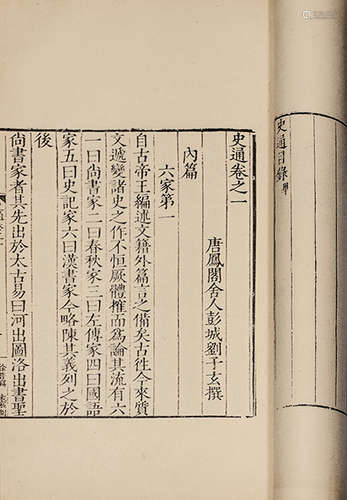 史通目錄畢
史通卷之一
唐鳳閣舍人彭城劉子玄撰
內篇
六家第一
自古帝王編述文籍外篇言之備矣古往今來質
文遞變諸史之作不恒厥體搉而爲論其流有六
一曰尚書家二曰春秋家三曰左傳家四曰國語
家五曰史記家六曰漢書家今略陳其義列之於
後
尚書家者其先出於太古易曰河出圖洛出書聖